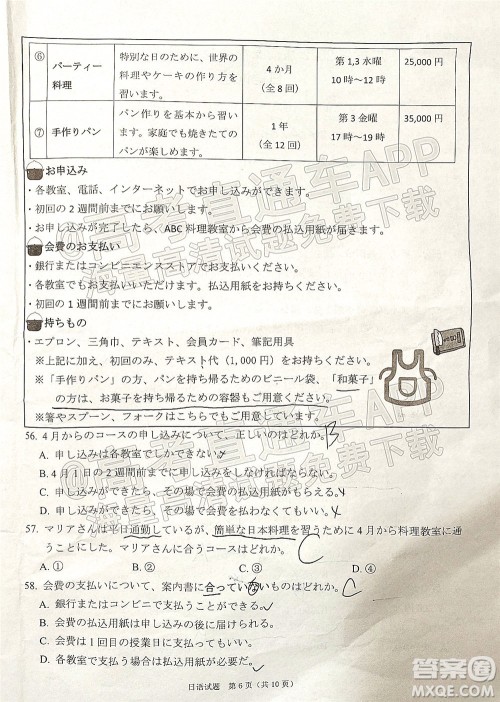 ⑥ パーティー料理 特別な日のために、世界の 4か月 第1,3水曜 25,000円
料理やケーキの作り方を (全8回) 10時〜12時
習います。
⑦ 手作りパン パン作りを基本から習い 1年 第3金曜 35,000円
ます。家庭でも焼きたての (全12回) 17時〜19時
パンが楽しめます。
お申込み
・各教室、電話、インターネットでお申し込みができます。
・初回の2週間前までにお願いします。
・お申し込みが完了したら、ABC料理教室から会費の払込用紙が届きます。
会費のお支払い
・銀行またはコンビニエンスストアでお支払いください。
・各教室でもお支払いいただけます。払込用紙をお持ちください。
・初回の1週間前までにお願いします。
持ちもの
・エプロン、三角巾、テキスト、会員カード、筆記用具
※上記に加え、初回のみ、テキスト代(1,000円)をお持ちください。
※「手作りパン」の方は、パンを持ち帰るためのビニール袋、「和菓子」
の方は、お菓子を持ち帰るための容器もご用意ください。
※箸やスプーン、フォークはこちらでもご用意しています。
56. 4月からのコースの申し込みについて、正しいのはどれか。 B
A. 申し込みは各教室でしかできない。
B. 4月1日の2週間前までに申し込みをしなければならない。
C. 申し込みができたら、その場で会費の払込用紙がもらえる。
D. 申し込みができたら、その場で会員カードがもらえる。
57. マリアさんは平日通勤しているが、簡単な日本料理を習うために4月から料理教室に通
うことにした。マリアさんに合うコースはどれか。 C
A. ① B. ② C. ③ D. ④
58. 会費の支払いについて、案内書に合っていないものはどれか。 C
A. 銀行またはコンビニで支払うことができる。
B. 会費の払込用紙は申し込みの後に届く。
C. 会費は1回目の授業日に支払ってもいい。
D. 各教室で支払う場合は払込用紙が必要だ。
日语试题 第6页(共10页)
答案圈
MXQE.COM